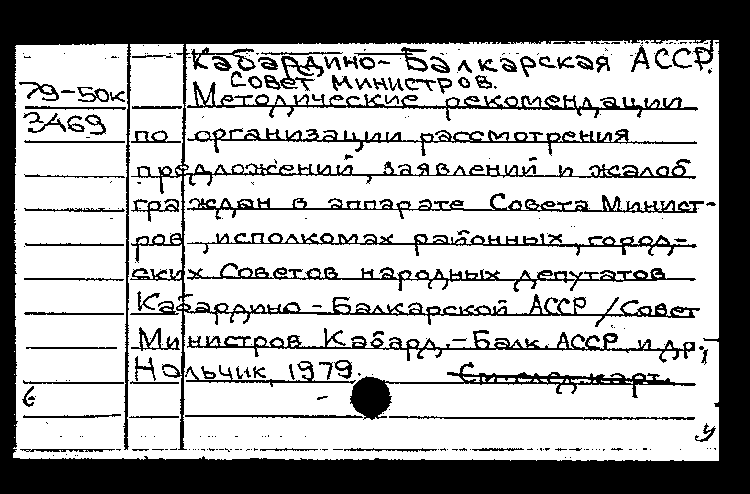 Кабардино-Балкарская АССР.
Совет министров.
79-50к Методические рекомендации
3469 по организации рассмотрения
предложений, заявлений и жалоб
граждан в аппарате Совета Минист-
ров, исполкомах районных, город-
ских Советов народных депутатов
Кабардино-Балкарской АССР / Совет
Министров Кабард.-Балк. АССР и др.;
Нольчик, 1979. См. след. карт.
6
у